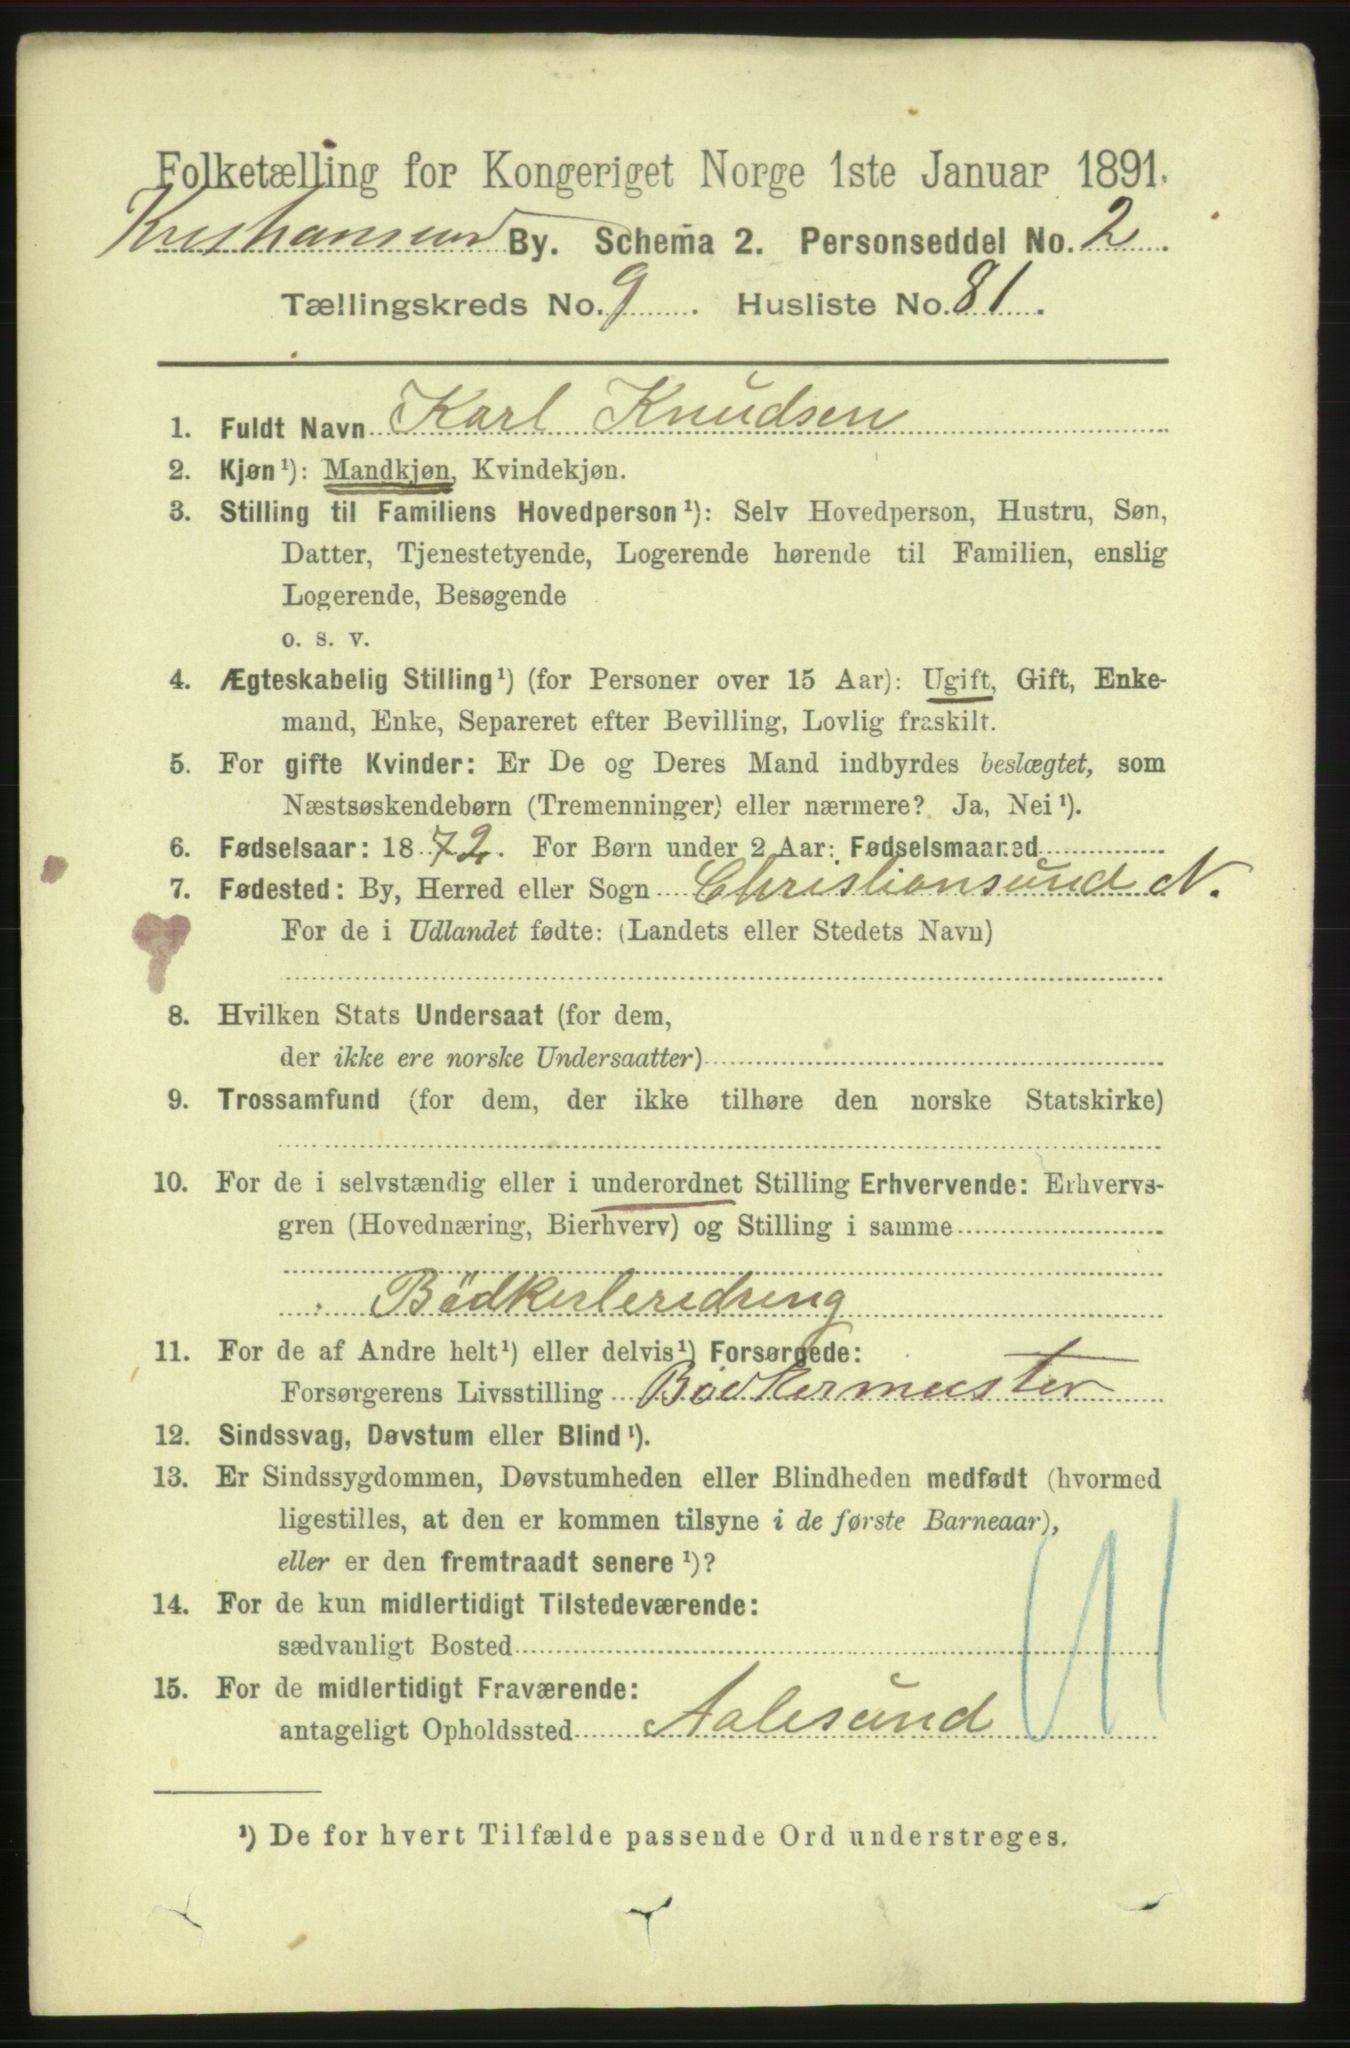 Folketælling for Kongeriget Norge 1ste Januar 1891.
Kristiansund By. Schema 2. Personseddel No. 2.
Tællingskreds No. 9. Husliste No. 81.
1. Fuldt Navn Karl Knudsen
2. Kjøn¹): Mandkjøn, Kvindekjøn.
3. Stilling til Familiens Hovedperson¹): Selv Hovedperson, Hustru, Søn,
Datter, Tjenestetyende, Logerende hørende til Familien, enslig
Logerende, Besøgende
o. s. v.
4. Ægteskabelig Stilling¹) (for Personer over 15 Aar): Ugift, Gift, Enke-
mand, Enke, Separeret efter Bevilling, Lovlig fraskilt.
5. For gifte Kvinder: Er De og Deres Mand indbyrdes beslægtet, som
Næstsøskendebørn (Tremenninger) eller nærmere? Ja, Nei¹).
6. Fødselsaar: 1872. For Børn under 2 Aar: Fødselsmaaned
7. Fødested: By, Herred eller Sogn Christiansund N.
For de i Udlandet fødte: (Landets eller Stedets Navn)
8. Hvilken Stats Undersaat (for dem,
der ikke ere norske Undersaatter)
9. Trossamfund (for dem, der ikke tilhøre den norske Statskirke)
10. For de i selvstændig eller i underordnet Stilling Erhvervende: Erhvervs-
gren (Hovednæring, Bierhverv) og Stilling i samme
Bödkerleredreng
11. For de af Andre helt¹) eller delvis¹) Forsørgede:
Forsørgerens Livsstilling Bödkermeester
12. Sindssvag, Døvstum eller Blind¹).
13. Er Sindssygdommen, Døvstumheden eller Blindheden medfødt (hvormed
ligestilles, at den er kommen tilsyne i de første Barneaar),
eller er den fremtraadt senere¹)?
14. For de kun midlertidigt Tilstedeværende:
sædvanligt Bosted
15. For de midlertidigt Fraværende:
antageligt Opholdssted Aalesund
¹) De for hvert Tilfælde passende Ord understreges.